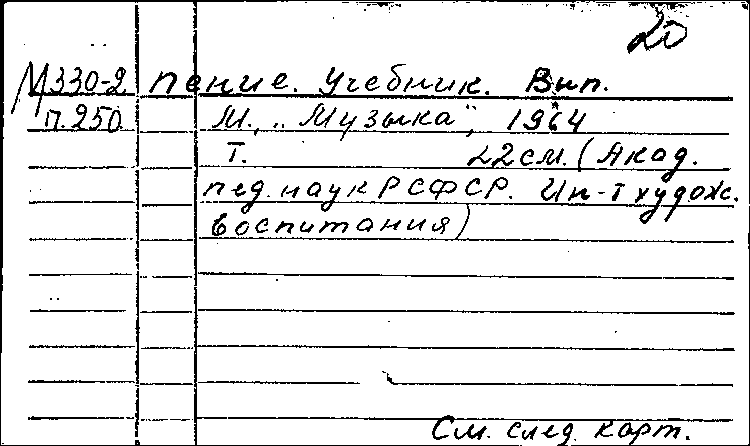 20
М330-2 Пение. Учебник. Вып.
П.250 М., „Музыка", 1964
Т. 22см. (Акад.
пед. наук РСФСР. Ин-т худож.
воспитания)
См. след. карт.